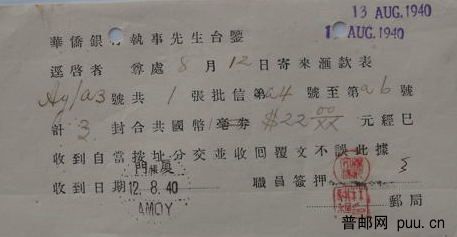 13 AUG. 1940
13 AUG. 1940
華僑銀行執事先生台鑒
逕啓者 尊處8月12日寄來滙款表
Ay/a3號共1張批信第a4號至第a6號
計3封合共國幣/毫券$22 00/XX元經已
收到自當按址分交並收回覆文不誤此據
收到日期 12.8.40 職員簽押
廈門
AMOY
郵局
普邮网 puu.cn